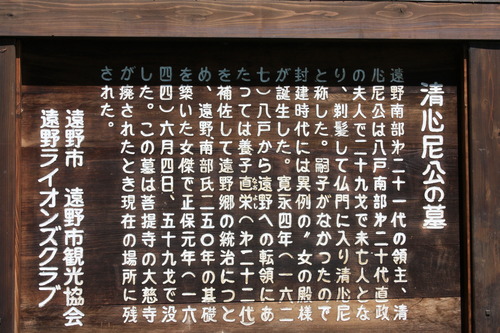 清心尼公の墓
遠野南部㐧二十一代の領主、清
心尼公は八戸南部㐧二十代直政
の夫人で二十九才で未亡人とな
り、剃髪して仏門に入り清心尼
と称した。嗣子がなかったので
封建時代には異例の〝女の殿様
が誕生した。寛永四年(一六二
七)八戸から遠野への転領にあ
たっては養子直栄(㐧二十二代)
を補佐して遠野郷の統治につと
め、遠野南部氏二五〇年の基礎
を築いた女傑で正保元年(一六
四四)六月四日、五十九才で没
した。この墓は菩提寺の大慈寺
が廃されたとき現在の場所に残
された。
遠野市 遠野市観光協会
遠野ライオンズクラブ